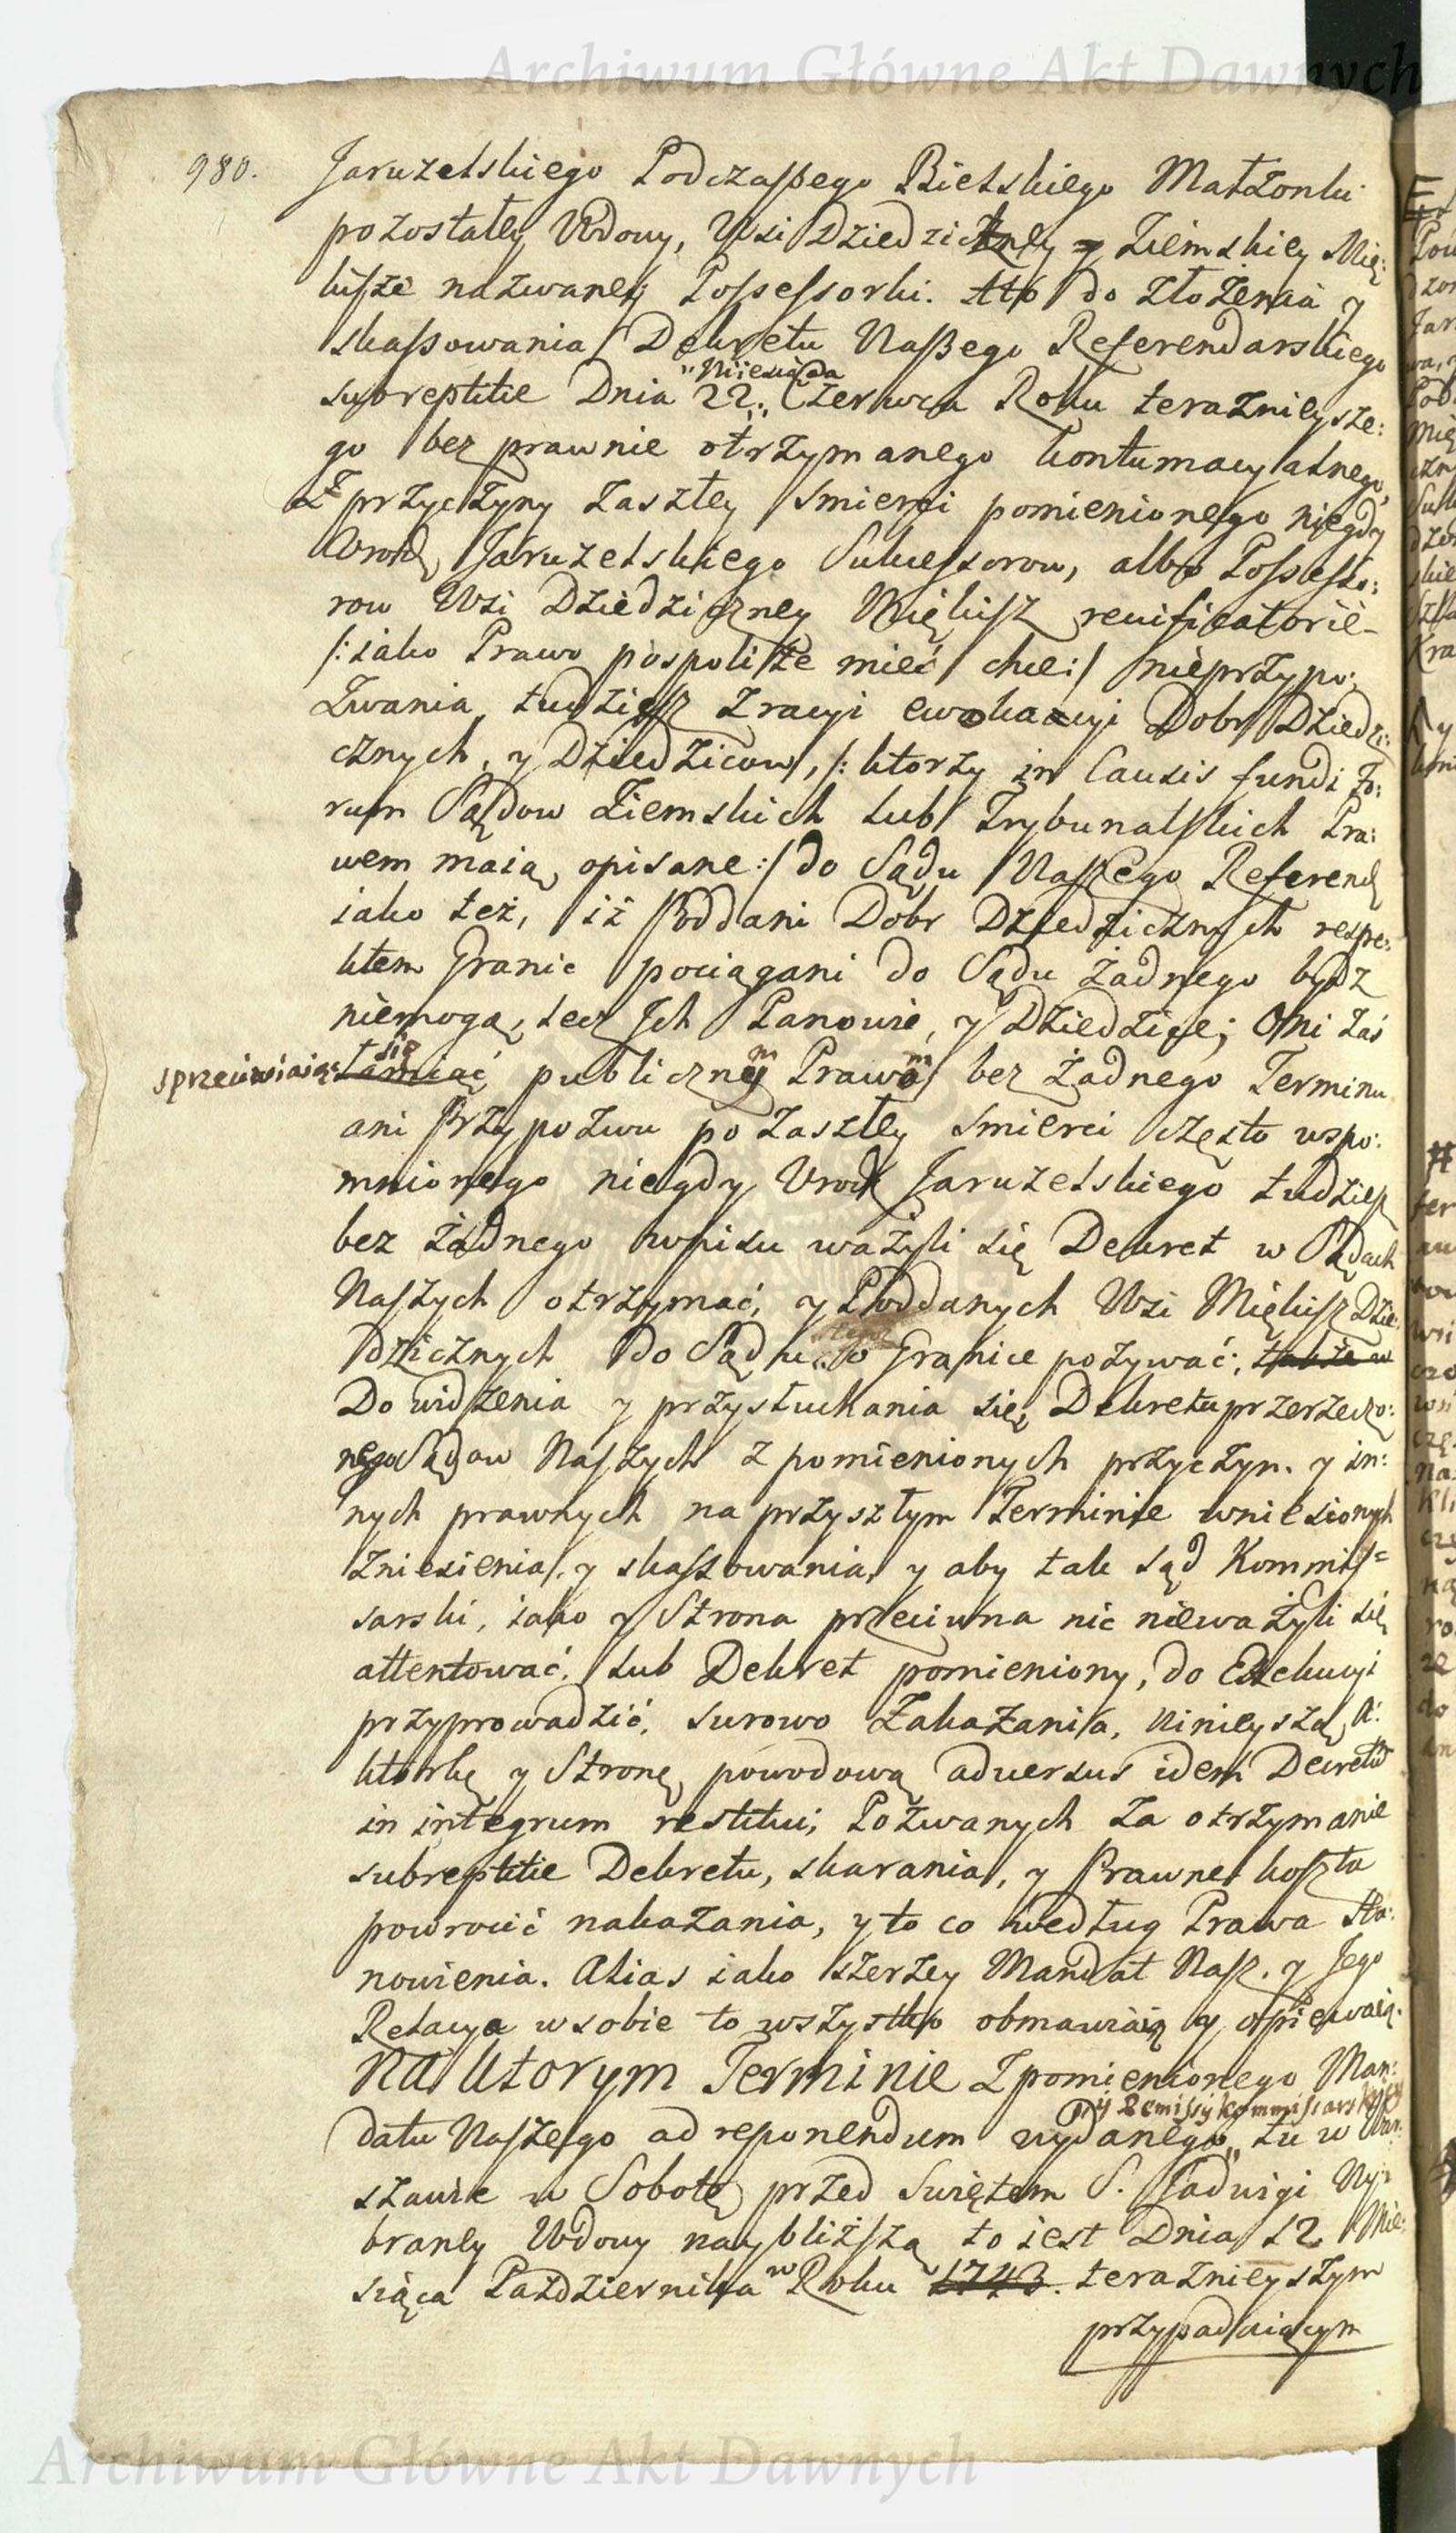 Archiwum Główne Akt Dawnych
980. Jaruzelskiego Podczaszego Bielskiego Małżonki
pozostałey Wdowy, Wsi Dziedziczney y Ziemskiey Mię:
kisze nazwaney Possessorki. Ato do złożenia y
skassowania Dekretu Naszego Referendarskiego
subreptitie Dnia 22. „Miesiąca Czerwca Roku teraznieysze:
go bez prawnie otrzymanego kontumacyalnego,
Z przyczyny zaszłey smierci pomienionego niegdy
Urodz Jaruzelskiego Sukcessorow, albo Possesso:
row Wsi Dziedziczney MięKisz reuificatorie
/: iako Prawo pospolite mieć chce :/ nieprzypo:
zwania, tudziesz zracyi ewokacyi Dobr Dziedzi:
cznych, y Dziedzicow, /: ktorzy in Causis fundi Fo:
rum Sądow Ziemskich lub Trybunalskich Pra:
wem maią opisane :/ do Sądu Naszego Referend
iako też, iż Poddani Dobr Dziedzicznych respe:
ktem Granic pociągani do Sądu żadnego bydz
niemogą, lecz Jch Panowie, y Dziedzice; Oni zaś
sprzeciwiaiąc się łamiąc publicznem Prawom bez żadnego Terminu
ani Przypozwu po zaszłey smierci często wspo:
mnionego niegdy Urodz Jaruzelskiego tudziesz
bez żadnego wpisu ważyli się Dekret w Sądach
Naszych otrzymać, y Poddanych Wsi Miękisz Dzie:
dzicznych do Sądu o Granice pozywać;
Do widzenia y przysłuchania się Dekretu przerzeczo:
nego Sądow Naszych z pomienionych przyczyn. y in:
nych prawnych na przyszłym Terminie wniesionych
zniesienia, y skassowania, y aby tak Sąd Kommis=
sarski, iako y Strona przeciwna nic nieważyli się
attentować, lub Dekret pomieniony, do Exekucyi
przyprowadzić, surowo Zakazania, ninieyszą A:
ktorkę y Stronę powodową adversus idem Decretum
in integrum restitui; Pozwanych za otrzymanie
subreptitie Dekretu, skarania, y Prawne koszta
powrocić nakazania, y to co według Prawa sta:
nowienia. Alias iako szerzey Mandat Nasz. y Jego
Relacya w sobie to wszystko obmawiaią y opiewaią.
Na ktorym Terminie z pomienionego Man:
datu Naszego ad reponendum wydaney Remissy kommissarskiey „ tu w War:
szawie w Sobotę przed Swiętem S. Jadwigi Wy:
braney Wdowy naybliższą to iest Dnia 12 Mie:
siąca Pazdziernika w Roku 1743. teraznieyszym
przypadaiącym
Archiwum Główne Akt Dawnych